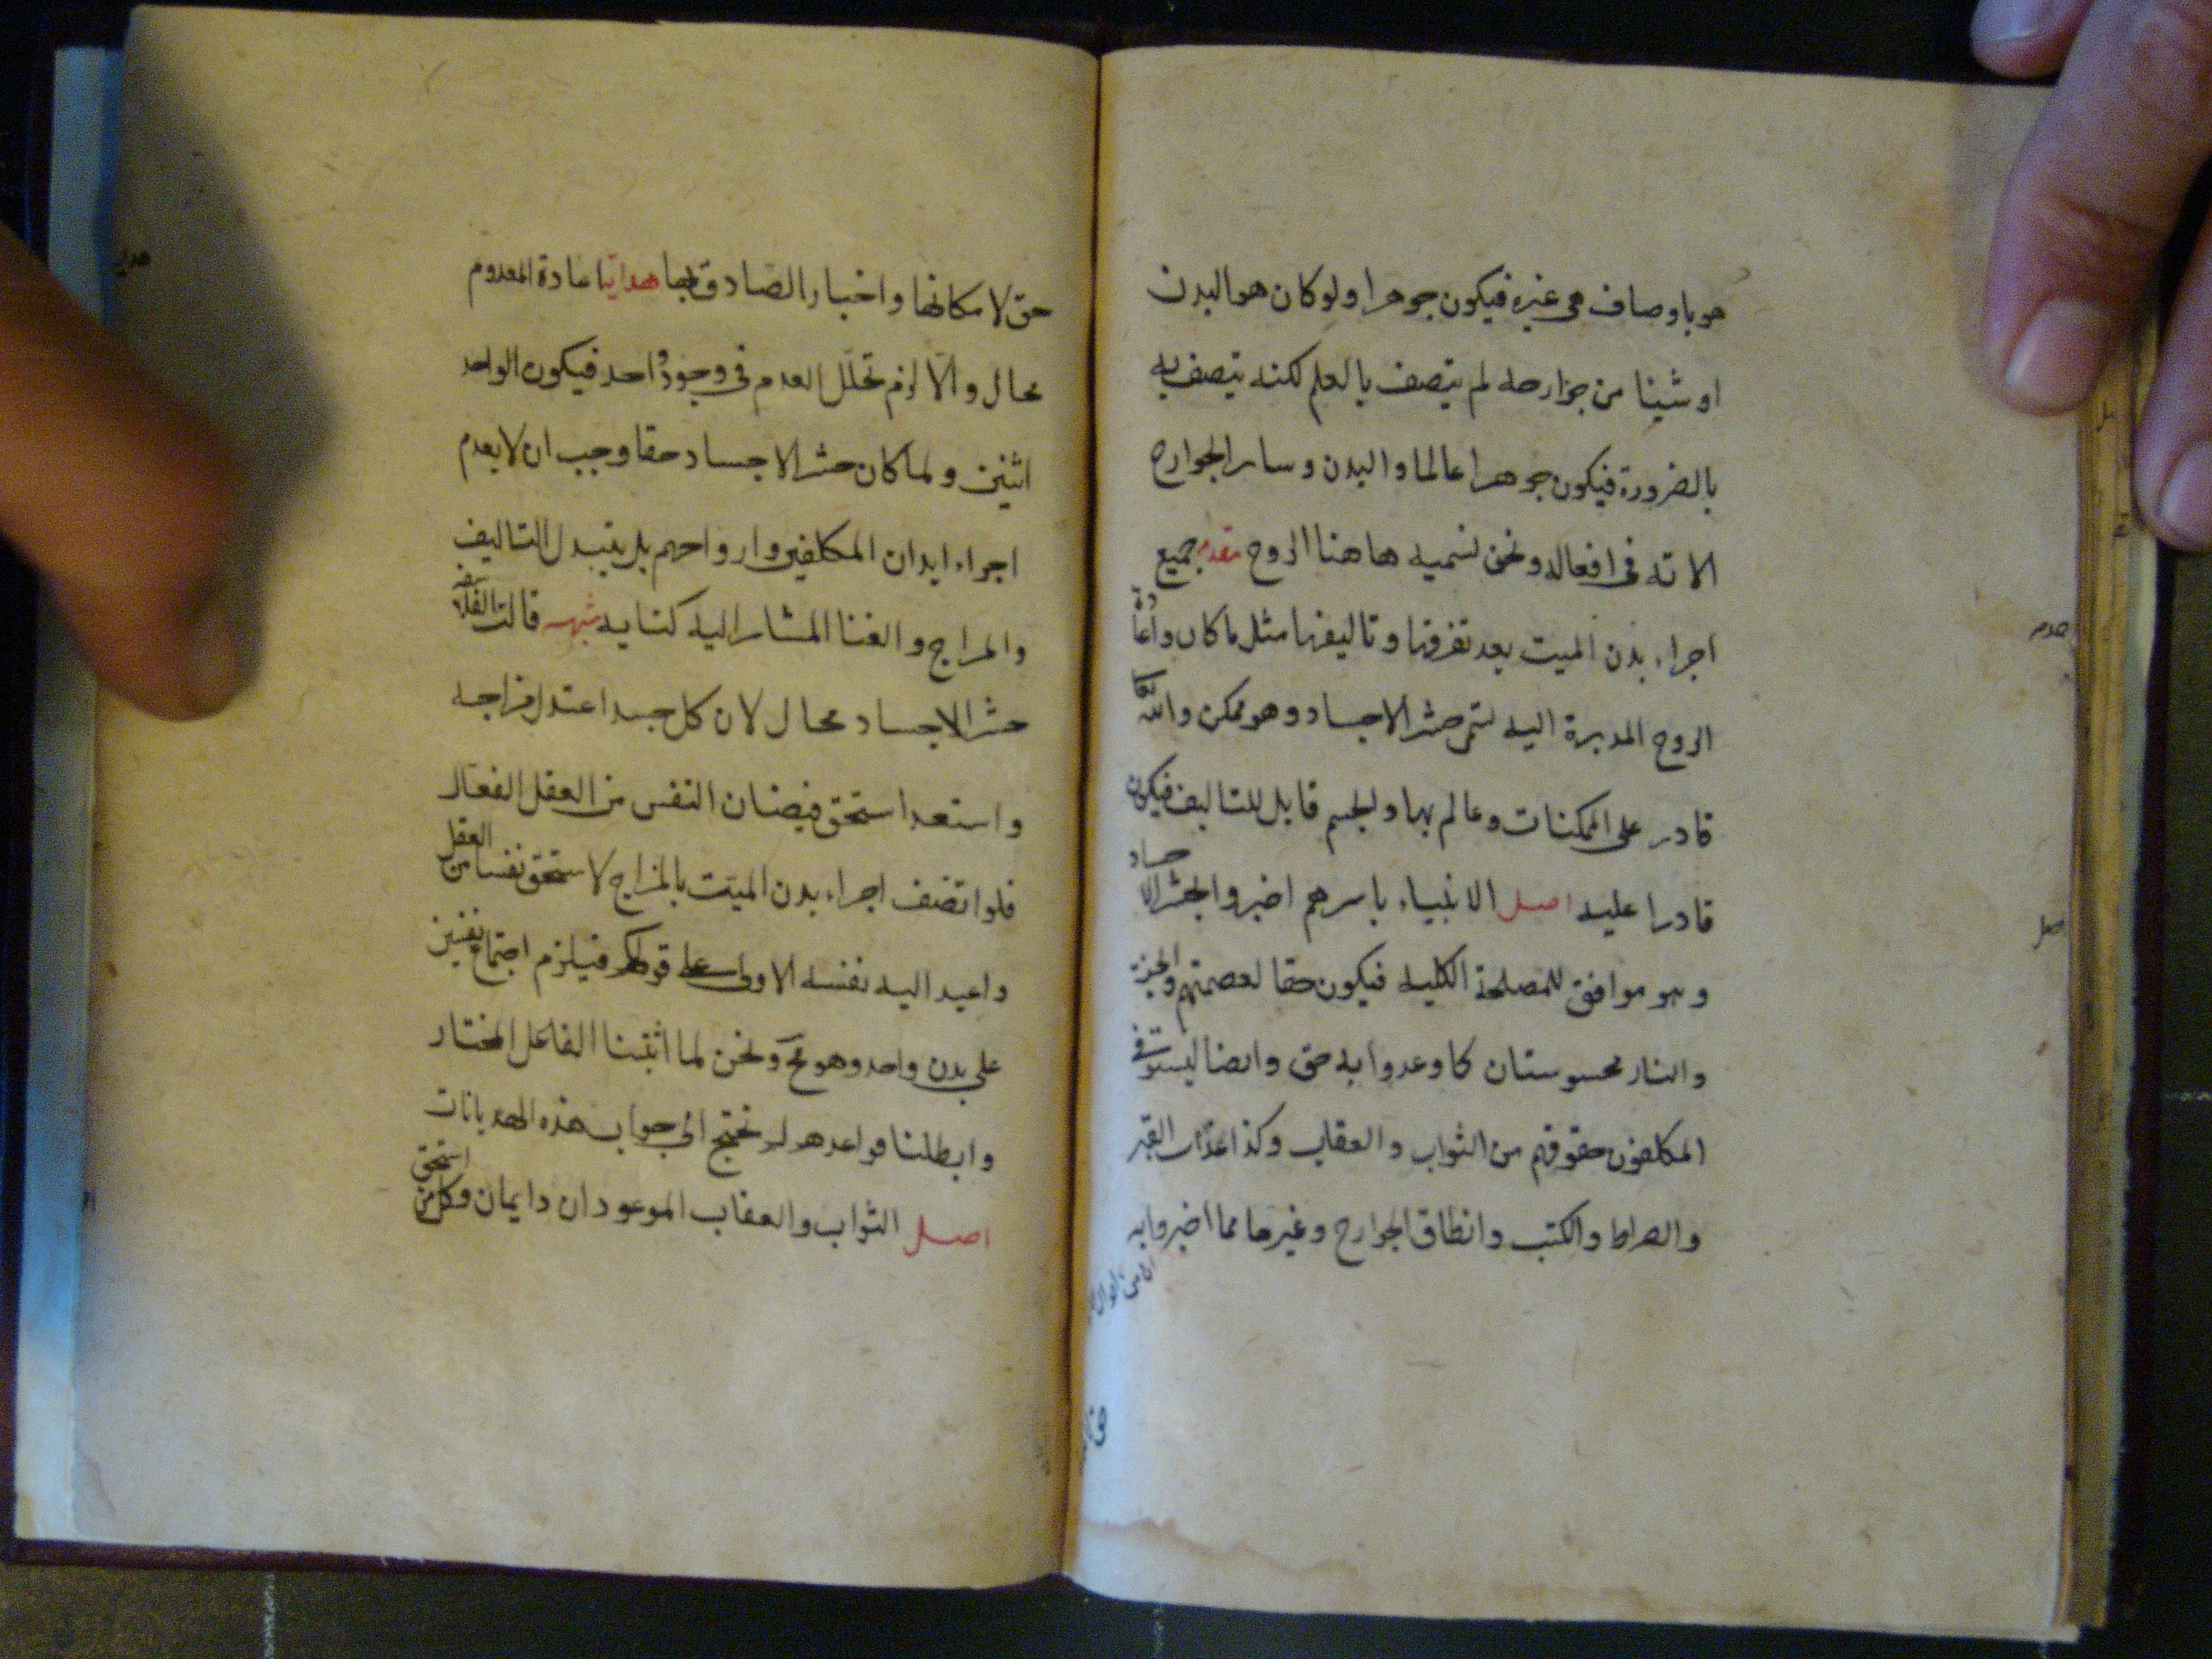 هو باوصاف هى غيره فيكون جوهرا ولو كان هو البدن
او شيئا من جوارحه لم يتصف بالعلم لكنه يتصف به
بالضرورة فيكون جوهرا عالما والبدن وساير الجوارح
الاته فى افعاله ونحن نسميه هاهنا الروح مقدمه جميع
اجزاء بدن الميت بعد تفرقها وتاليفها مثل ما كان واعادة
الروح المدبرة اليه لتمى حشر الاجساد وهو ممكن والله تعالى
قادر على الممكنات وعالم بها والجسم قابل للتاليف فيكون
قادرا عليه اصل الانبياء باسرهم اخبروا بحشر الاجساد
وهو موافق للمصلحة الكلية فيكون حقا لعصمتهم والجنة
والنار محسوستان كما وعدوا به حق وايضا ليستوفى
المكلفون حقوقهم من الثواب والعقاب وكذا عذاب القبر
والصراط والكتب وانطاق الجوارح وغيرها مما اخبروا به
حق لامكانها واخبار الصادق بها هداية اعادة المعدوم
محال والا لزم تخلل العدم فى وجود واحد فيكون الواحد
اثنين ولما كان حشر الاجساد حقا وجب ان لا يعدم
اجزاء ابدان المكلفين وارواحهم بل يتبدل التاليف
والمزاج والفنا المشار اليه كناية شبهه قالت الفلاسفة
حشر الاجساد محال لان كل جسد اعتدل مزاجه
واستعد استحق فيضان النفس من العقل الفعال
فلو اتصف اجزاء بدن الميت بالمزاج لاستحق نفسا من العقل
واعيد اليه نفسه الاولى على قولكم فيلزم اجتماع نفسين
على بدن واحد وهو مح ونحن لما اثبتنا الفاعل المختار
وابطلنا قواعدهم لم نحتج الى جواب هذه الهذيانات
اصل الثواب والعقاب الموعودان دايمان وكل من استحق